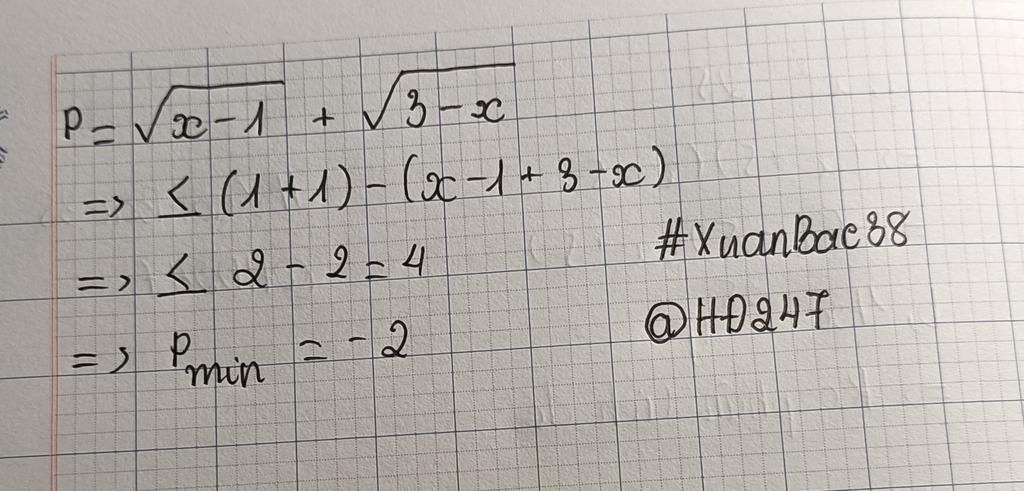 P = √(x-1) + √(3-x)
=> ≤ (1+1) - (x-1+3-x)
=> ≤ 2 - 2 = 4
=> Pmin = -2
#XuanBac38
@HĐ247